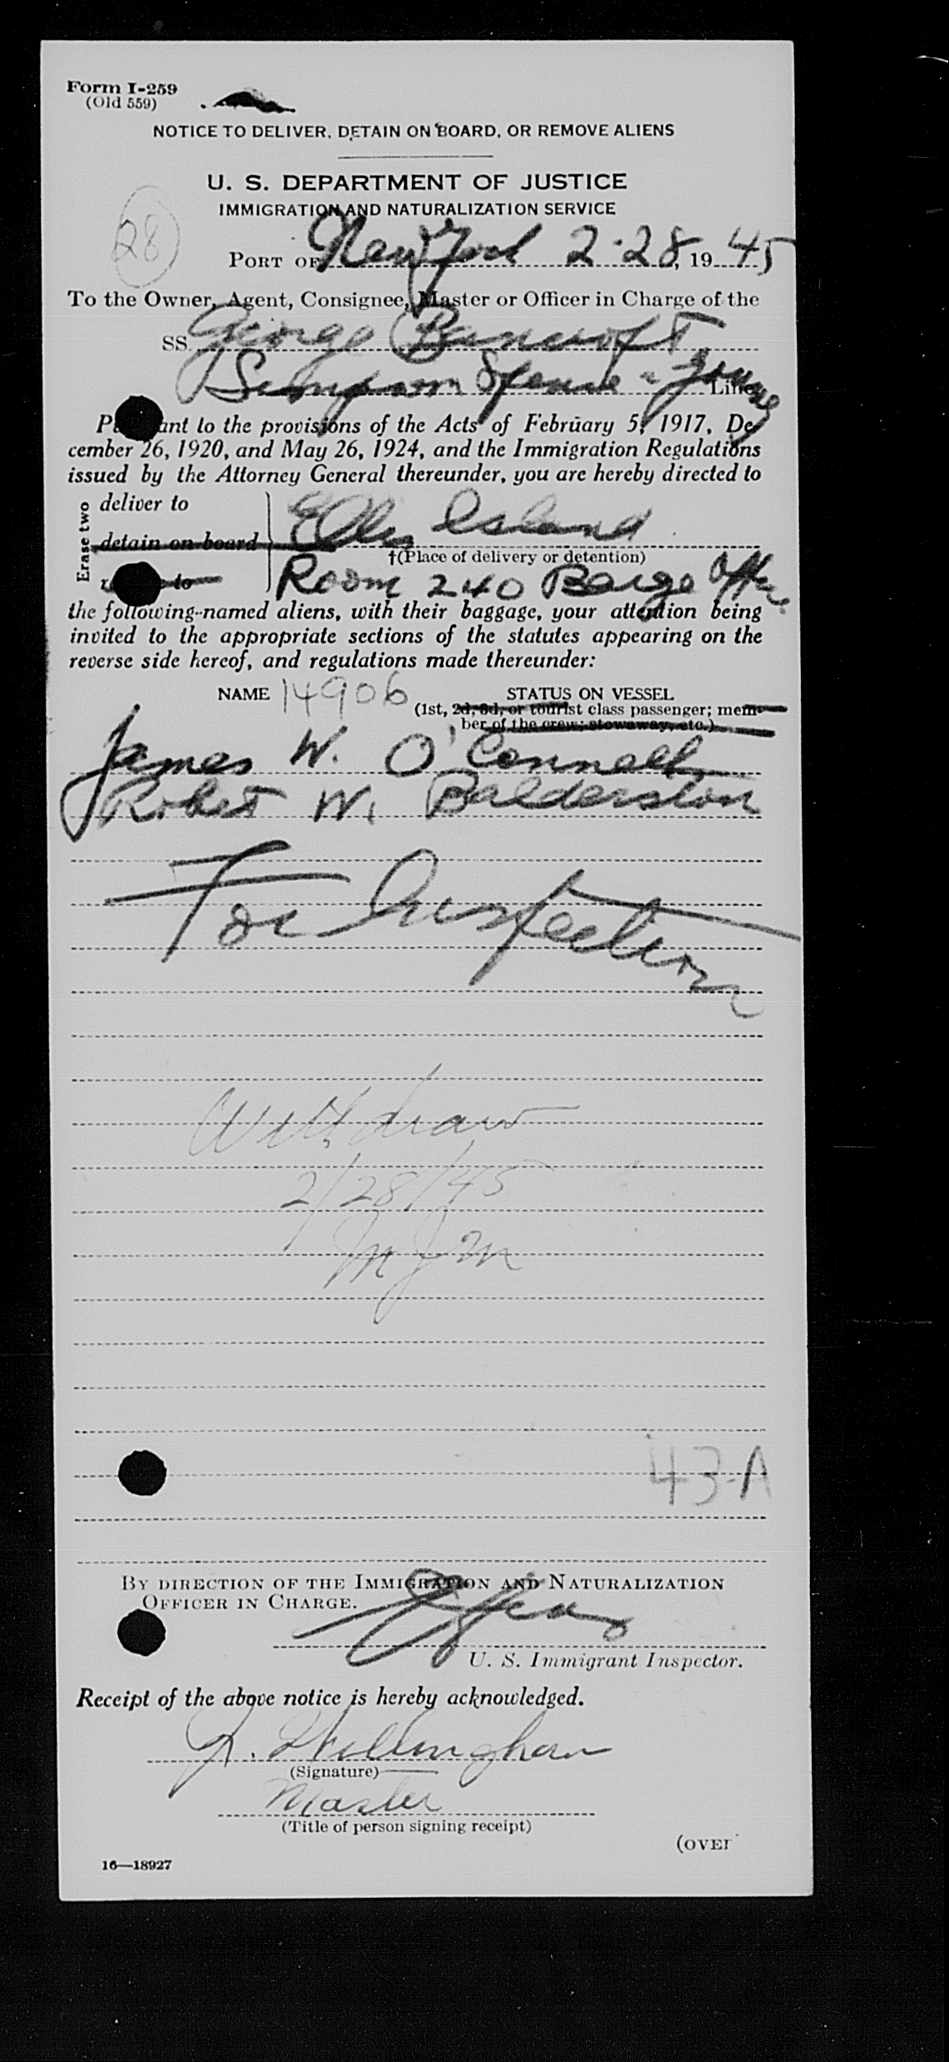 Form I-259
(Old 559)
NOTICE TO DELIVER, DETAIN ON BOARD, OR REMOVE ALIENS
U. S. DEPARTMENT OF JUSTICE
IMMIGRATION AND NATURALIZATION SERVICE
28
PORT OF New York 2-28, 1945
To the Owner, Agent, Consignee, Master or Officer in Charge of the
SS. George Bancroft
Simpson Spence & Young Line
Pursuant to the provisions of the Acts of February 5, 1917, De-
cember 26, 1920, and May 26, 1924, and the Immigration Regulations
issued by the Attorney General thereunder, you are hereby directed to
Erase two
deliver to
detain on board
Ellis Island
†(Place of delivery or detention)
Room 240 Barge Office
the following-named aliens, with their baggage, your attention being
invited to the appropriate sections of the statutes appearing on the
reverse side hereof, and regulations made thereunder:
NAME 14906 STATUS ON VESSEL
(1st, 2d, 3d, or tourist class passenger; mem-
ber of the crew; stowaway, etc.)
James W. O'Connell
Robert W. Balderston
For Inspection
Withdraw
2/28/45
MJM
43-A
BY DIRECTION OF THE IMMIGRATION AND NATURALIZATION
OFFICER IN CHARGE.
U. S. Immigrant Inspector.
Receipt of the above notice is hereby acknowledged.
(Signature)
Master
(Title of person signing receipt)
(OVER
16—18927